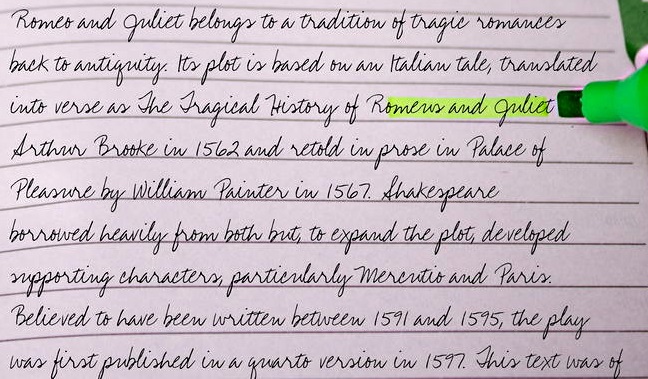 Romeo and Juliet belongs to a tradition of tragic romances
back to antiquity. Its plot is based on an Italian tale, translated
into verse as The Tragical History of Romeus and Juliet
Arthur Brooke in 1562 and retold in prose in Palace of
Pleasure by William Painter in 1567. Shakespeare
borrowed heavily from both but, to expand the plot, developed
supporting characters, particularly Mercutio and Paris.
Believed to have been written between 1591 and 1595, the play
was first published in a quarto version in 1597. This text was of